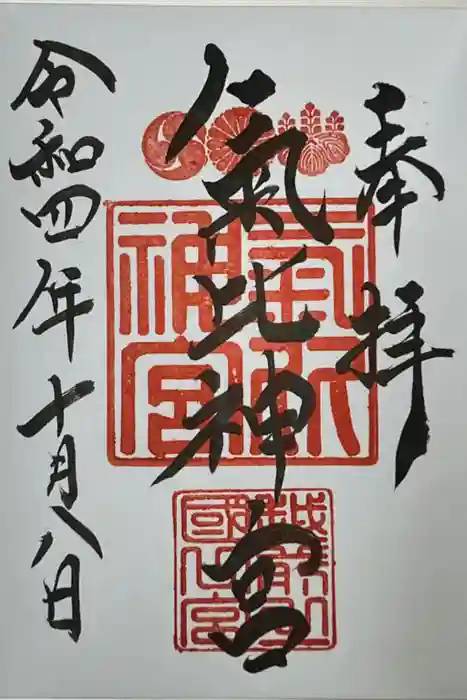 奉拝
氣比神宮
令和四年十月八日
氣比神宮
越前國一宮